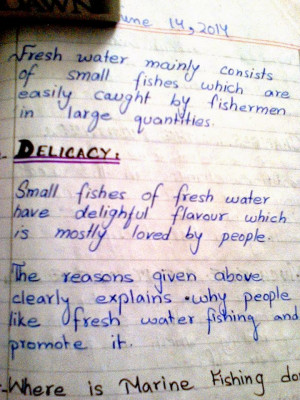 DAWN
June 14, 2014
Fresh water mainly consists
of small fishes which are
easily caught by fishermen
in large quantities.
DELICACY:
Small fishes of fresh water
have delighful flavour which
is mostly loved by people.
The reasons given above
clearly explains why people
like fresh water fishing and
promote it.
Where is Marine Fishing do